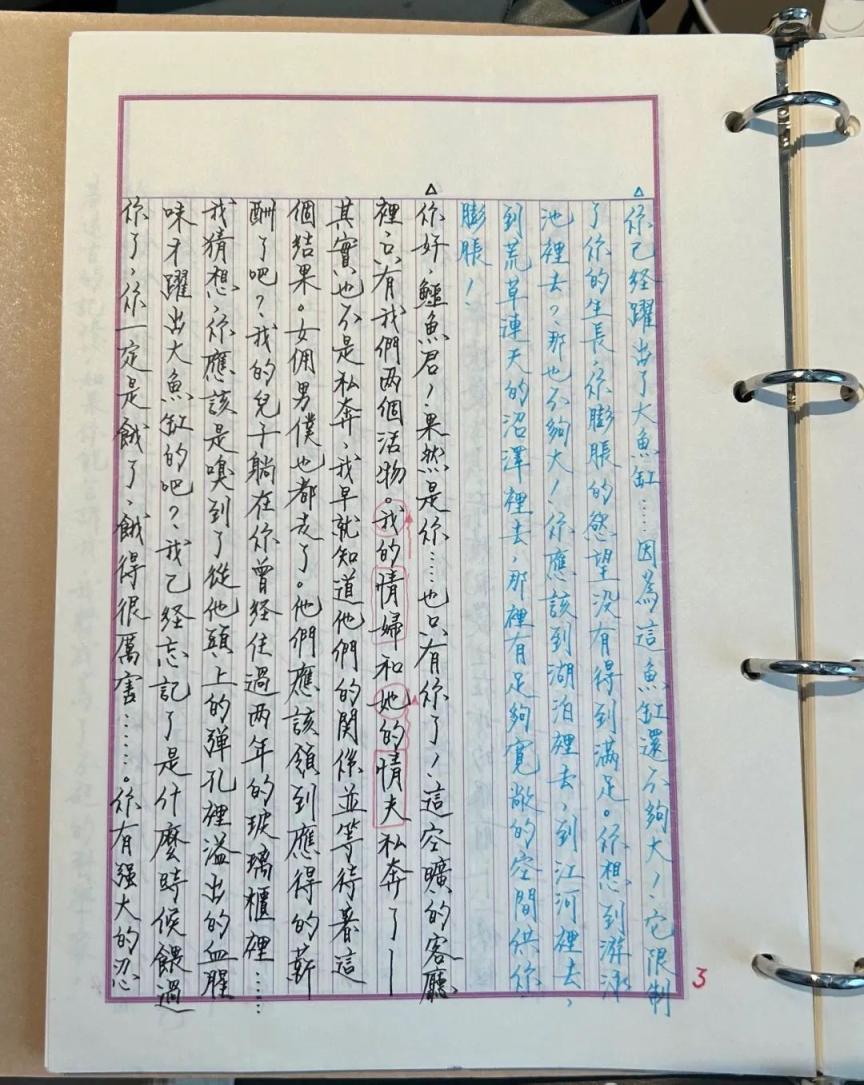 △你已经躍出了大魚缸……因為這魚缸還不夠大！它限制
了你的生長，你膨脹的慾望没有得到滿足。你想到游泳
池裡去？那也不夠大！你應該到湖泊裡去，到江河裡去，
到荒草連天的沼澤裡去，那裡有足夠寬敞的空間供你
膨脹！
△你好，鱷魚君！果然是你……也只有你了！這空曠的客廳
裡，只有我們两個活物。我的情婦和她的情夫私奔了—
其實也不是私奔，我早就知道他們的関係並等待著這
個結果。女佣男僕也都走了。他們應該領到應得的薪
酬了吧？我的兒子躺在你曾经住過两年的玻璃櫃裡……
我猜想，你應該是嗅到了從他頭上的彈孔裡溢出的血腥
味才躍出大魚缸的吧？我已经忘記了是什麼時候餵過
你了，你一定是餓了，餓得很厲害……。你有强大的忍
3